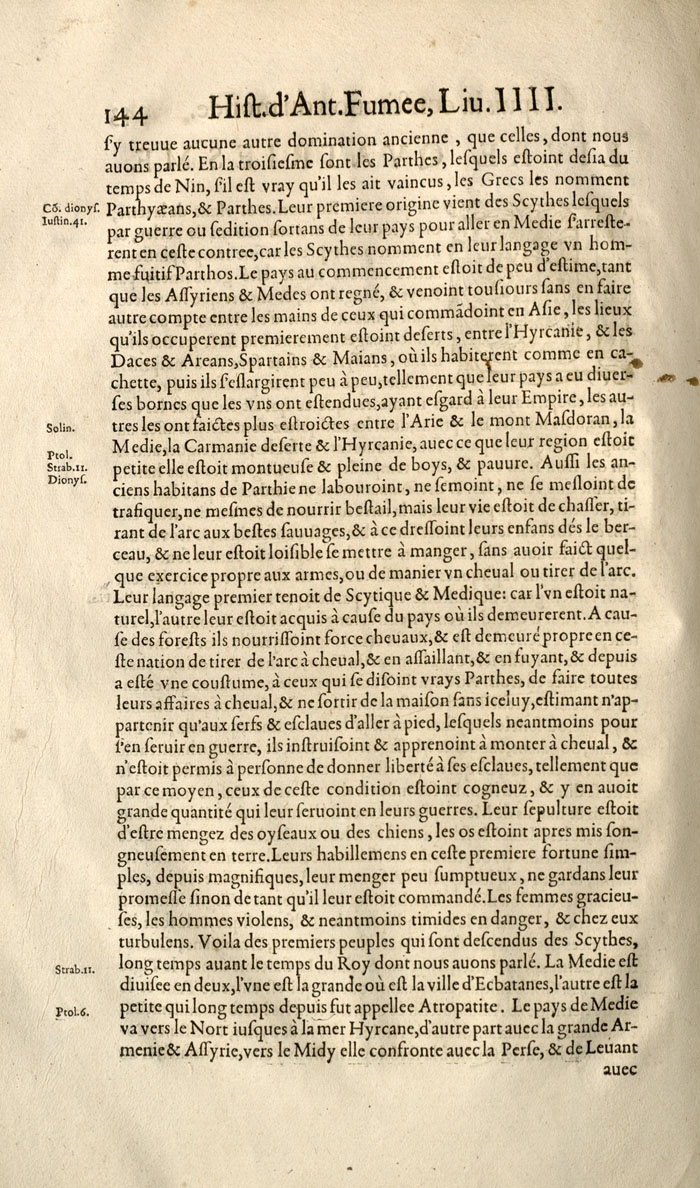 144 Hiſt.d'Ant.Fumee, Liu.IIII.
ſ'y treuue aucune autre domination ancienne , que celles, dont nous
auons parlé. En la troiſieſme ſont les Parthes, leſquels eſtoint deſia du
temps de Nin, ſ'il eſt vray qu'il les ait vaincus, les Grecs les nomment
Cō. dionyſ.
Iuſtin.41.
Parthyæans,& Parthes.Leur premiere origine vient des Scythes leſquels
par guerre ou ſedition ſortans de leur pays pour aller en Medie ſ'arreſte-
rent en ceſte contree,car les Scythes nomment en leur langage vn hom-
me fuitif Parthos.Le pays au commencement eſtoit de peu d'eſtime,tant
que les Aſſyriens & Medes ont regné, & venoint touſiours ſans en faire
autre compte entre les mains de ceux qui commādoint en Aſie, les lieux
qu'ils occuperent premierement eſtoint deſerts, entre l'Hyrcanie, & les
Daces & Areans,Spartains & Maians, où ils habiterent comme en ca-
chette, puis ils ſ'eſlargirent peu à peu,tellement que leur pays a eu diuer-
ſes bornes que les vns ont eſtendues,ayant eſgard à leur Empire, les au-
Solin.
tres les ont faictes plus eſtroictes entre l'Arie & le mont Maſdoran, la
Medie,la Carmanie deſerte & l'Hyrcanie, auec ce que leur region eſtoit
Ptol.
Strab.11.
Dionyſ.
petite elle eſtoit montueuſe & pleine de boys, & pauure. Auſſi les an-
ciens habitans de Parthie ne labouroint, ne ſemoint, ne ſe meſloint de
trafiquer,ne meſmes de nourrir beſtail,mais leur vie eſtoit de chaſſer, ti-
rant de l'arc aux beſtes ſauuages,& à ce dreſſoint leurs enfans dés le ber-
ceau, & ne leur eſtoit loiſible ſe mettre à manger, ſans auoir faict quel-
que exercice propre aux armes,ou de manier vn cheual ou tirer de l'arc.
Leur langage premier tenoit de Scytique & Medique: car l'vn eſtoit na-
turel,l'autre leur eſtoit acquis à cauſe du pays où ils demeurerent. A cau-
ſe des foreſts ils nourriſſoint force cheuaux,& eſt demeuré propre en ce-
ſte nation de tirer de l'arc à cheual,& en aſſaillant,& en fuyant,& depuis
a eſté vne couſtume, à ceux qui ſe diſoint vrays Parthes, de faire toutes
leurs affaires à cheual,& ne ſortir de la maiſon ſans iceluy,eſtimant n'ap-
partenir qu'aux ſerfs & eſclaues d'aller à pied, leſquels neantmoins pour
ſ'en ſeruir en guerre, ils inſtruiſoint & apprenoint à monter à cheual, &
n'eſtoit permis à perſonne de donner liberté à ſes eſclaues, tellement que
par ce moyen, ceux de ceſte condition eſtoint cogneuz, & y en auoit
grande quantité qui leur ſeruoint en leurs guerres. Leur ſepulture eſtoit
d'eſtre mengez des oyſeaux ou des chiens, les os eſtoint apres mis ſon-
gneuſement en terre.Leurs habillemens en ceſte premiere fortune ſim-
ples, depuis magnifiques, leur menger peu ſumptueux, ne gardans leur
promeſſe ſinon de tant qu'il leur eſtoit commandé.Les femmes gracieu-
ſes, les hommes violens, & neantmoins timides en danger, & chez eux
turbulens. Voila des premiers peuples qui ſont deſcendus des Scythes,
Strab.11.
long temps auant le temps du Roy dont nous auons parlé. La Medie eſt
diuiſee en deux,l'vne eſt la grande où eſt la ville d'Ecbatanes,l'autre eſt la
Ptol.6.
petite qui long temps depuis fut appellee Atropatite. Le pays de Medie
va vers le Nort iuſques à la mer Hyrcane,d'autre part auec la grande Ar-
menie & Aſſyrie,vers le Midy elle confronte auec la Perſe, & de Leuant
auec